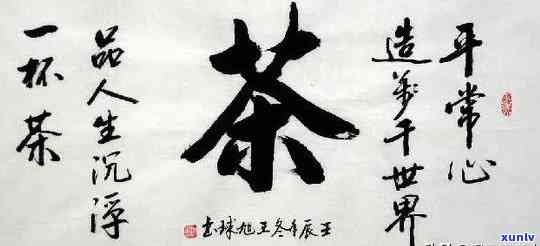 茶
一杯茶
品人生沉浮
平常心
造萬千世界
壬辰年冬王旭球书
xunlv